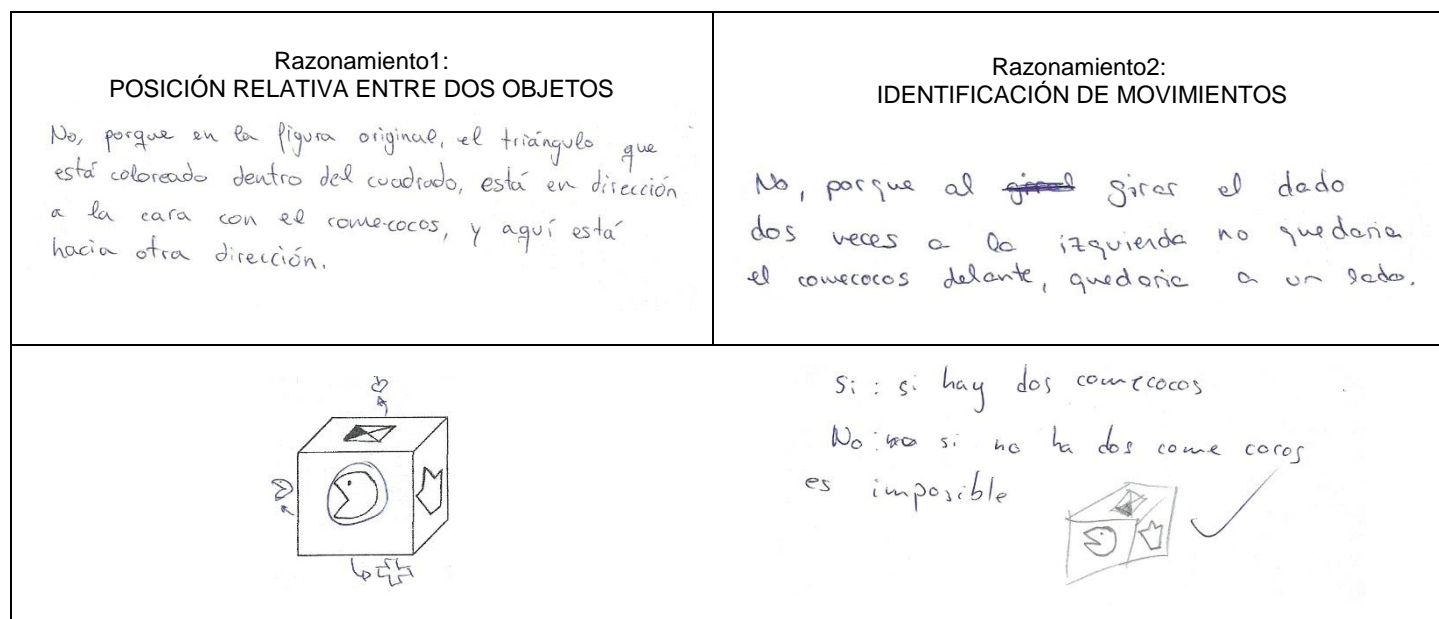 Razonamiento1:
POSICIÓN RELATIVA ENTRE DOS OBJETOS
No, porque en la figura original, el triángulo que
está coloreado dentro del cuadrado, está en dirección
a la cara con el comecocos, y aquí está
hacia otra dirección.
Razonamiento2:
IDENTIFICACIÓN DE MOVIMIENTOS
No, porque al girar el dado
dos veces a la izquierda no quedaria
el comecocos delante, quedaria a un lado.
Si : si hay dos comecocos
No : si no ha dos come cocos
es imposible